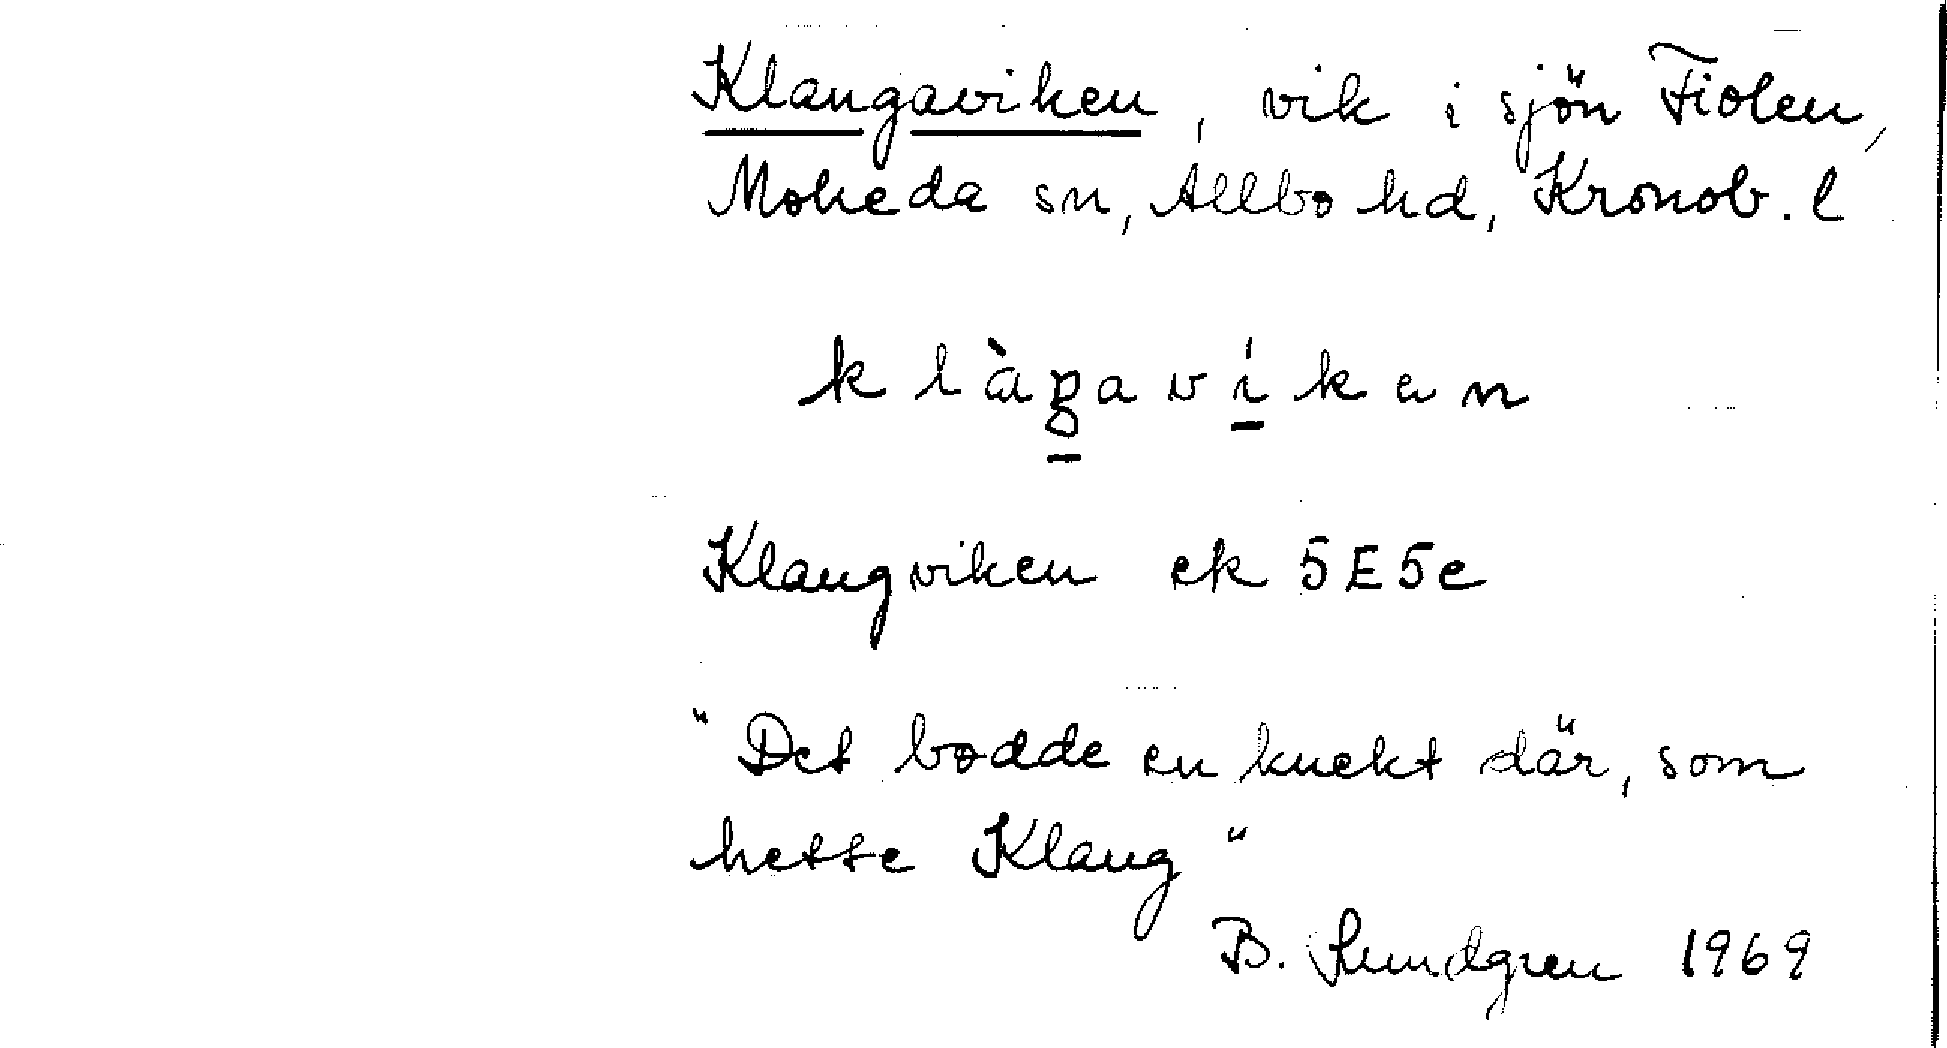 Klangaviken, vik i sjön Fiolen,
Moheda sn, Allbo hd, Kronob. l
klàŋavíkən
Klangviken ek 5E5e
"Det bodde en knekt där, som
hette Klang"
B. Lundgren 1969